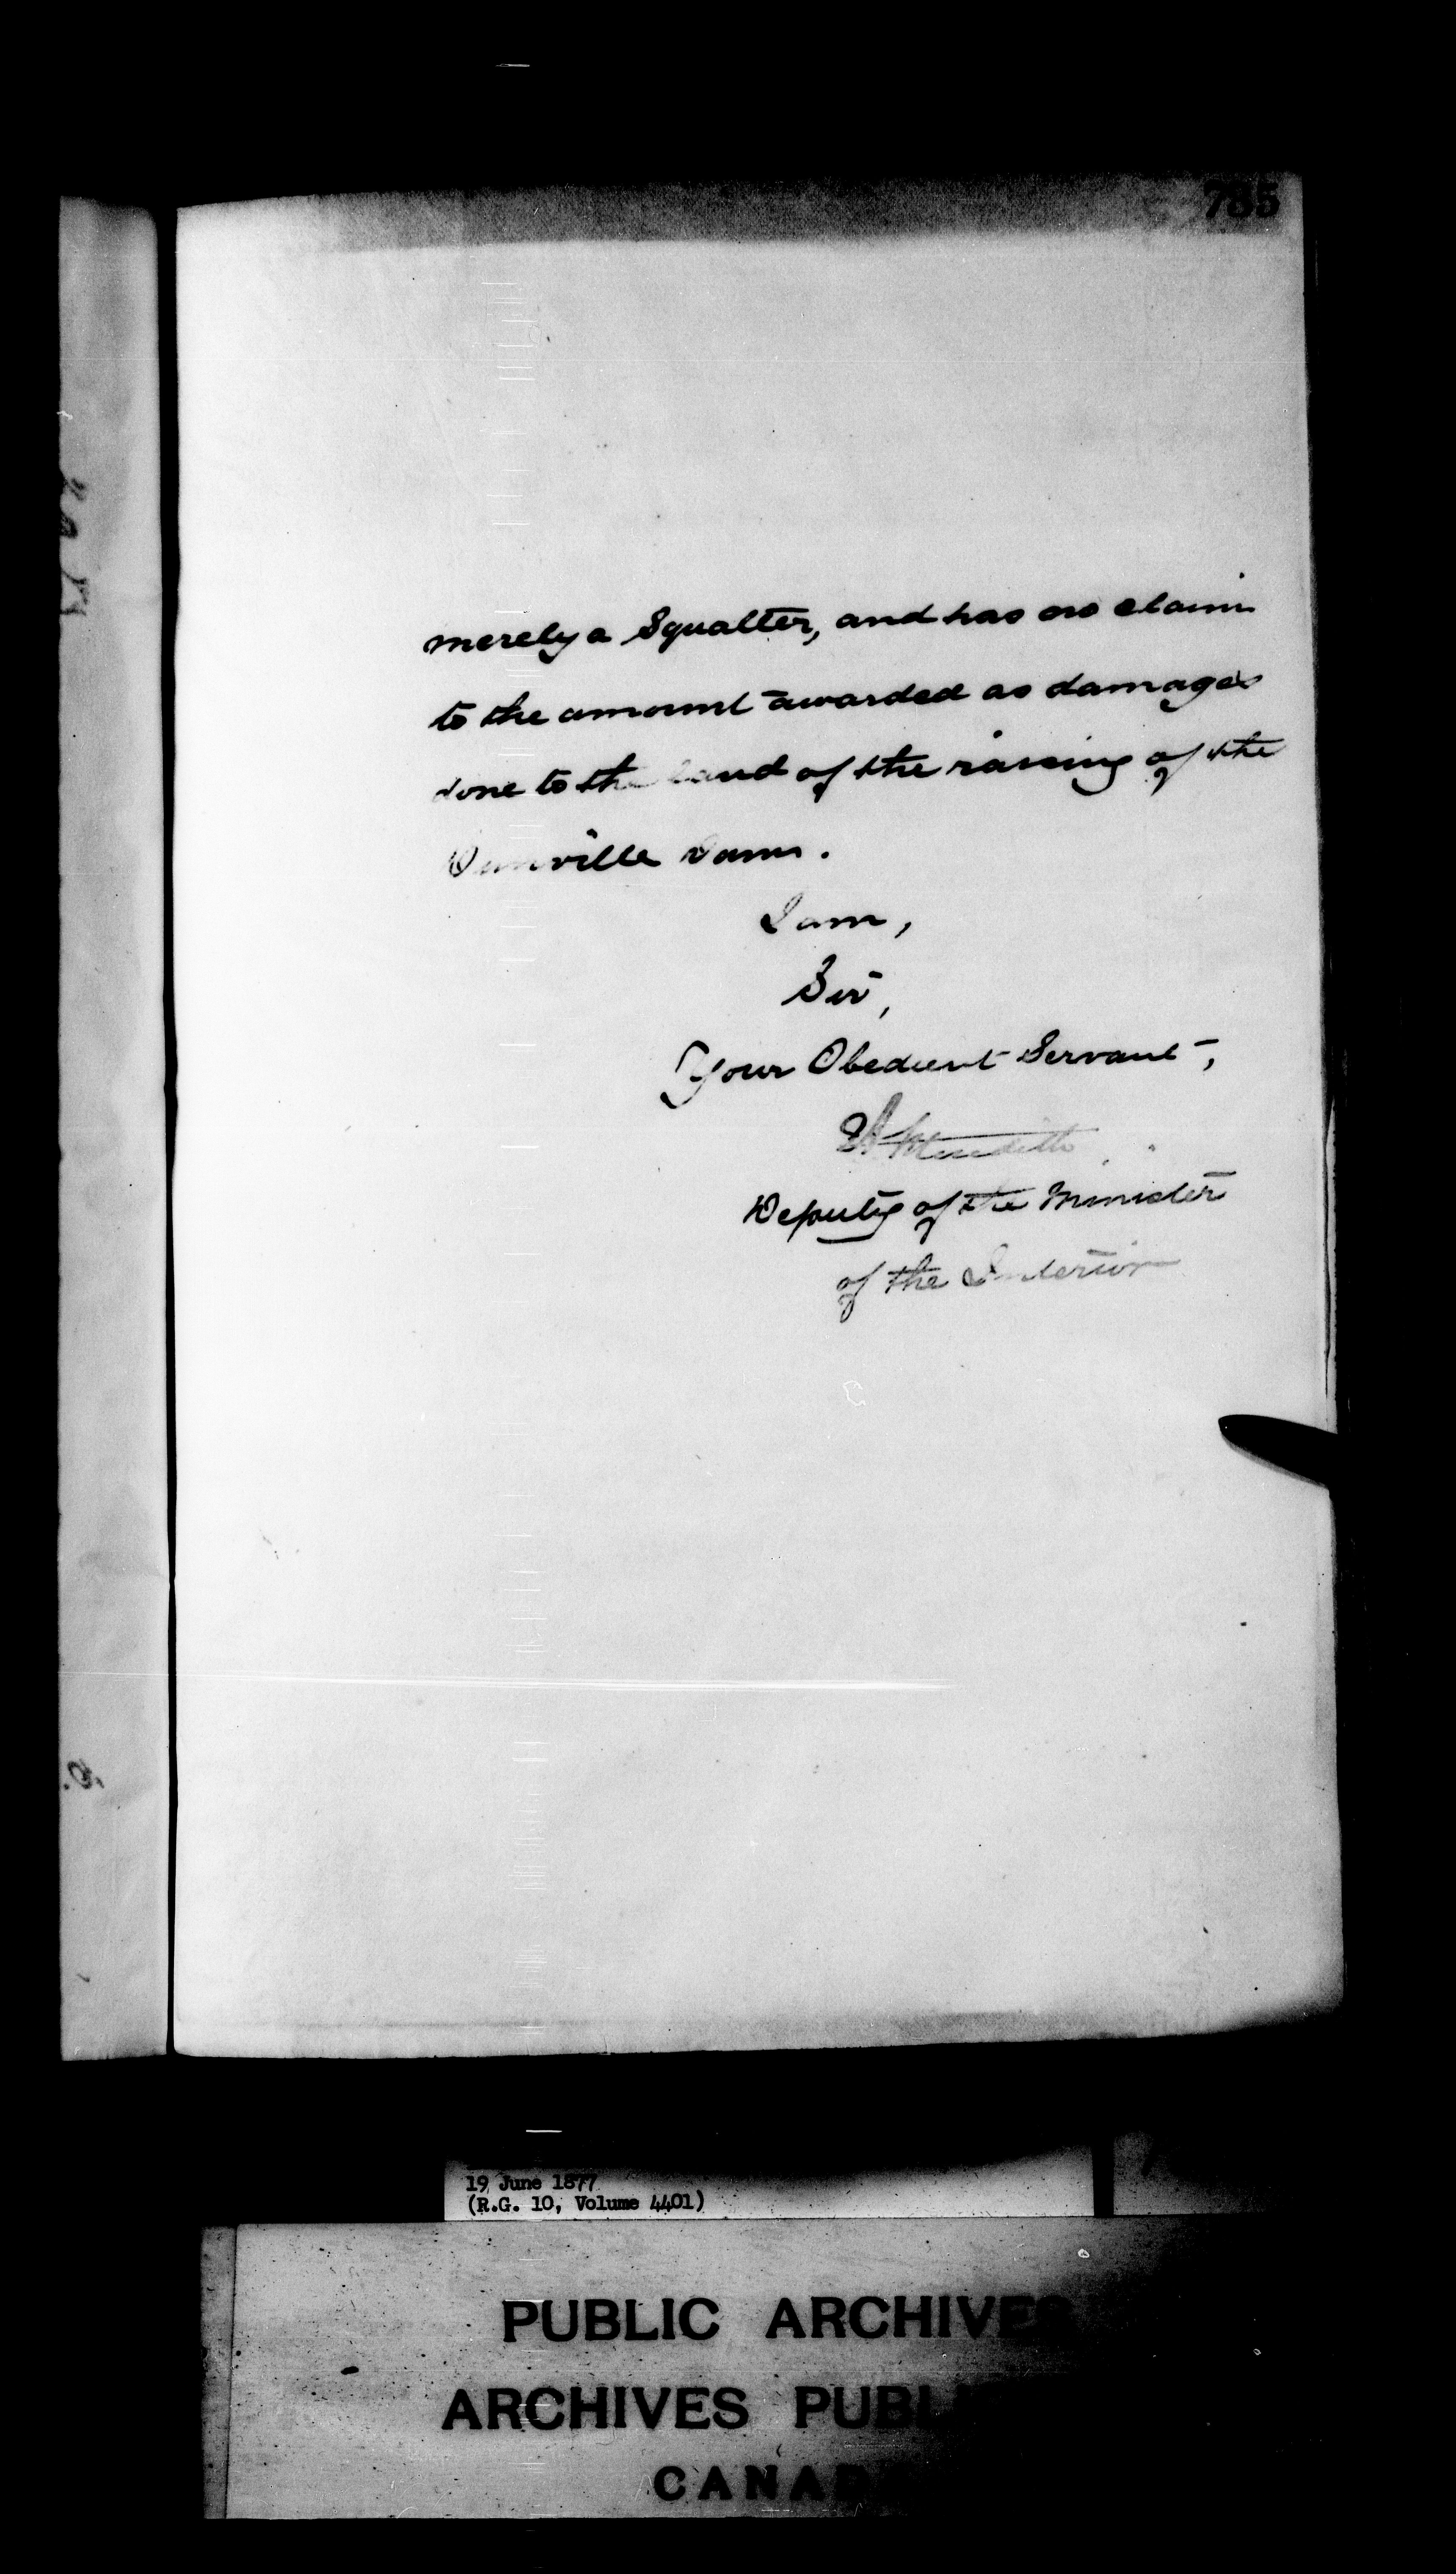 785
merely a Squatter, and has no claim
to the amount awarded as damages
done to the land of the raising of the
Dunville Dam.
I am,
Sir,
Your Obedient Servant,
Meredith
Deputy of the Minister
of the Interior
19 June 1877
(R.G. 10, Volume 4401)
PUBLIC ARCHIVES
ARCHIVES PUBLI
CANADA